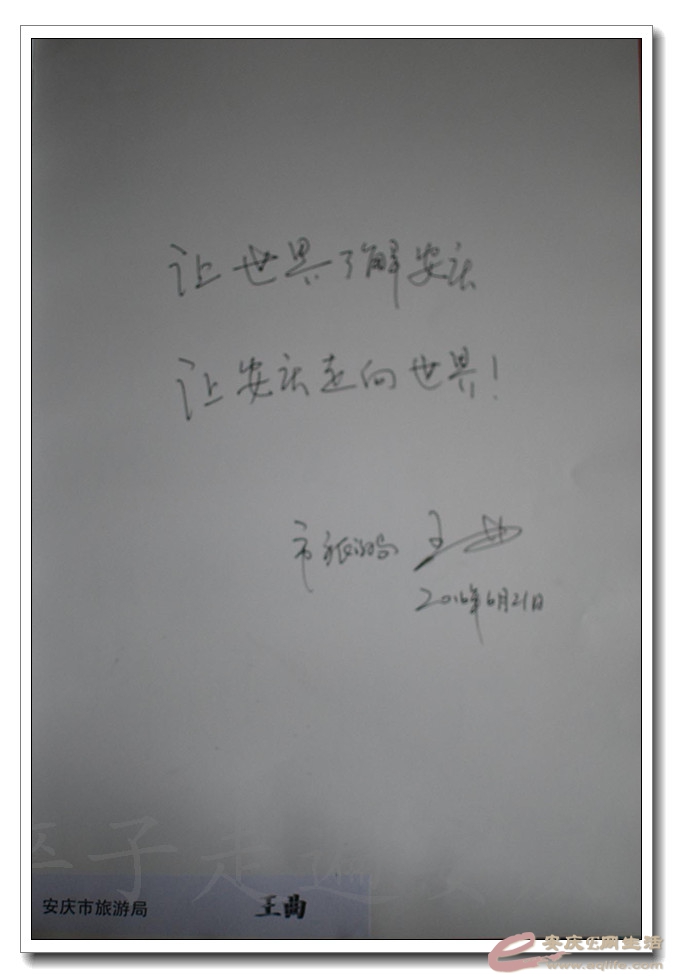 让世界了解安庆
让安庆走向世界！
市旅游局 王曲
2016年6月21日
子走遍
安庆市旅游局 王曲
安庆e网生活
www.aqlife.com